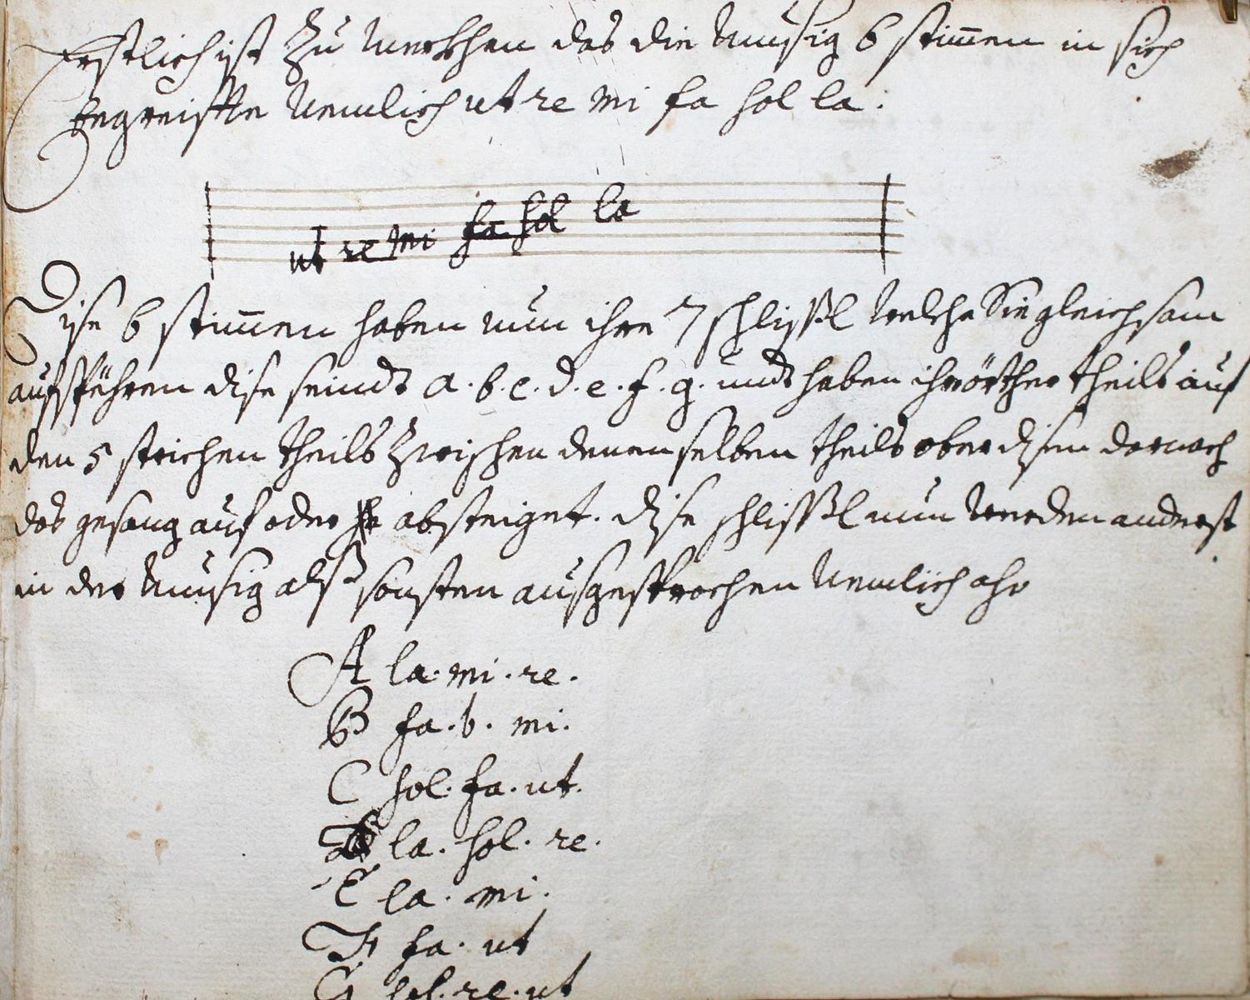 Erstlich ist zu merkhen das die Musig 6 stim̄en in sich
begreiffe Nemlich ut re mi fa sol la.
ut re mi fa sol la
Dise 6 stim̄en haben nun ihre 7 schlissl welche Sie gleichsam
aufführen dise seindt a. b. c. d. e. f. g. undt haben ihr örther theils auf
den 5 strichen theils zwischen denenselben theils ober disen darnach
das gesang auf oder absteiget. dise schlissl nun werden anderst
in der Musig alß sonsten ausgesprochen Nemlich also
A la. mi. re.
B fa. b. mi.
C sol. fa. ut.
D la. sol. re.
E la. mi.
F fa. ut
G sol. re. ut